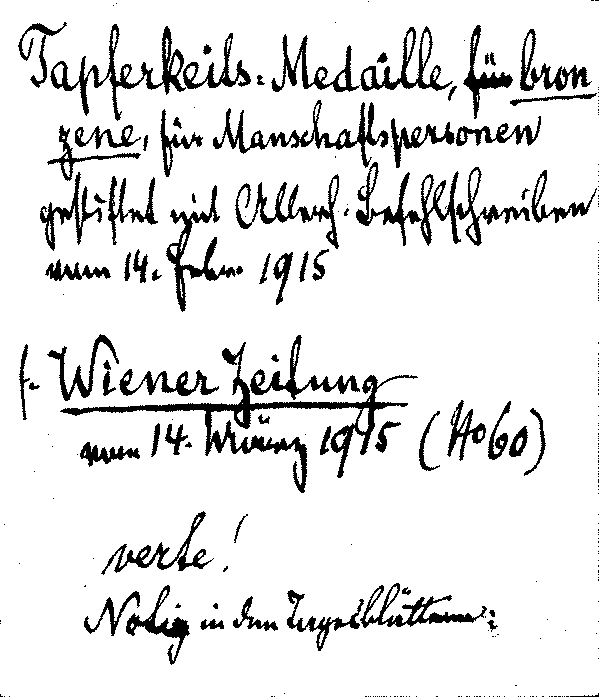 Tapferkeits-Medaille, für bron
zene, für Manschaftspersonen
gestiftet mit Allerh. Befehlschreiben
vom 14. Febr. 1915
s. Wiener Zeitung
vom 14. März 1915 (No 60)
verte!
Notiz in den Tagesblättern: